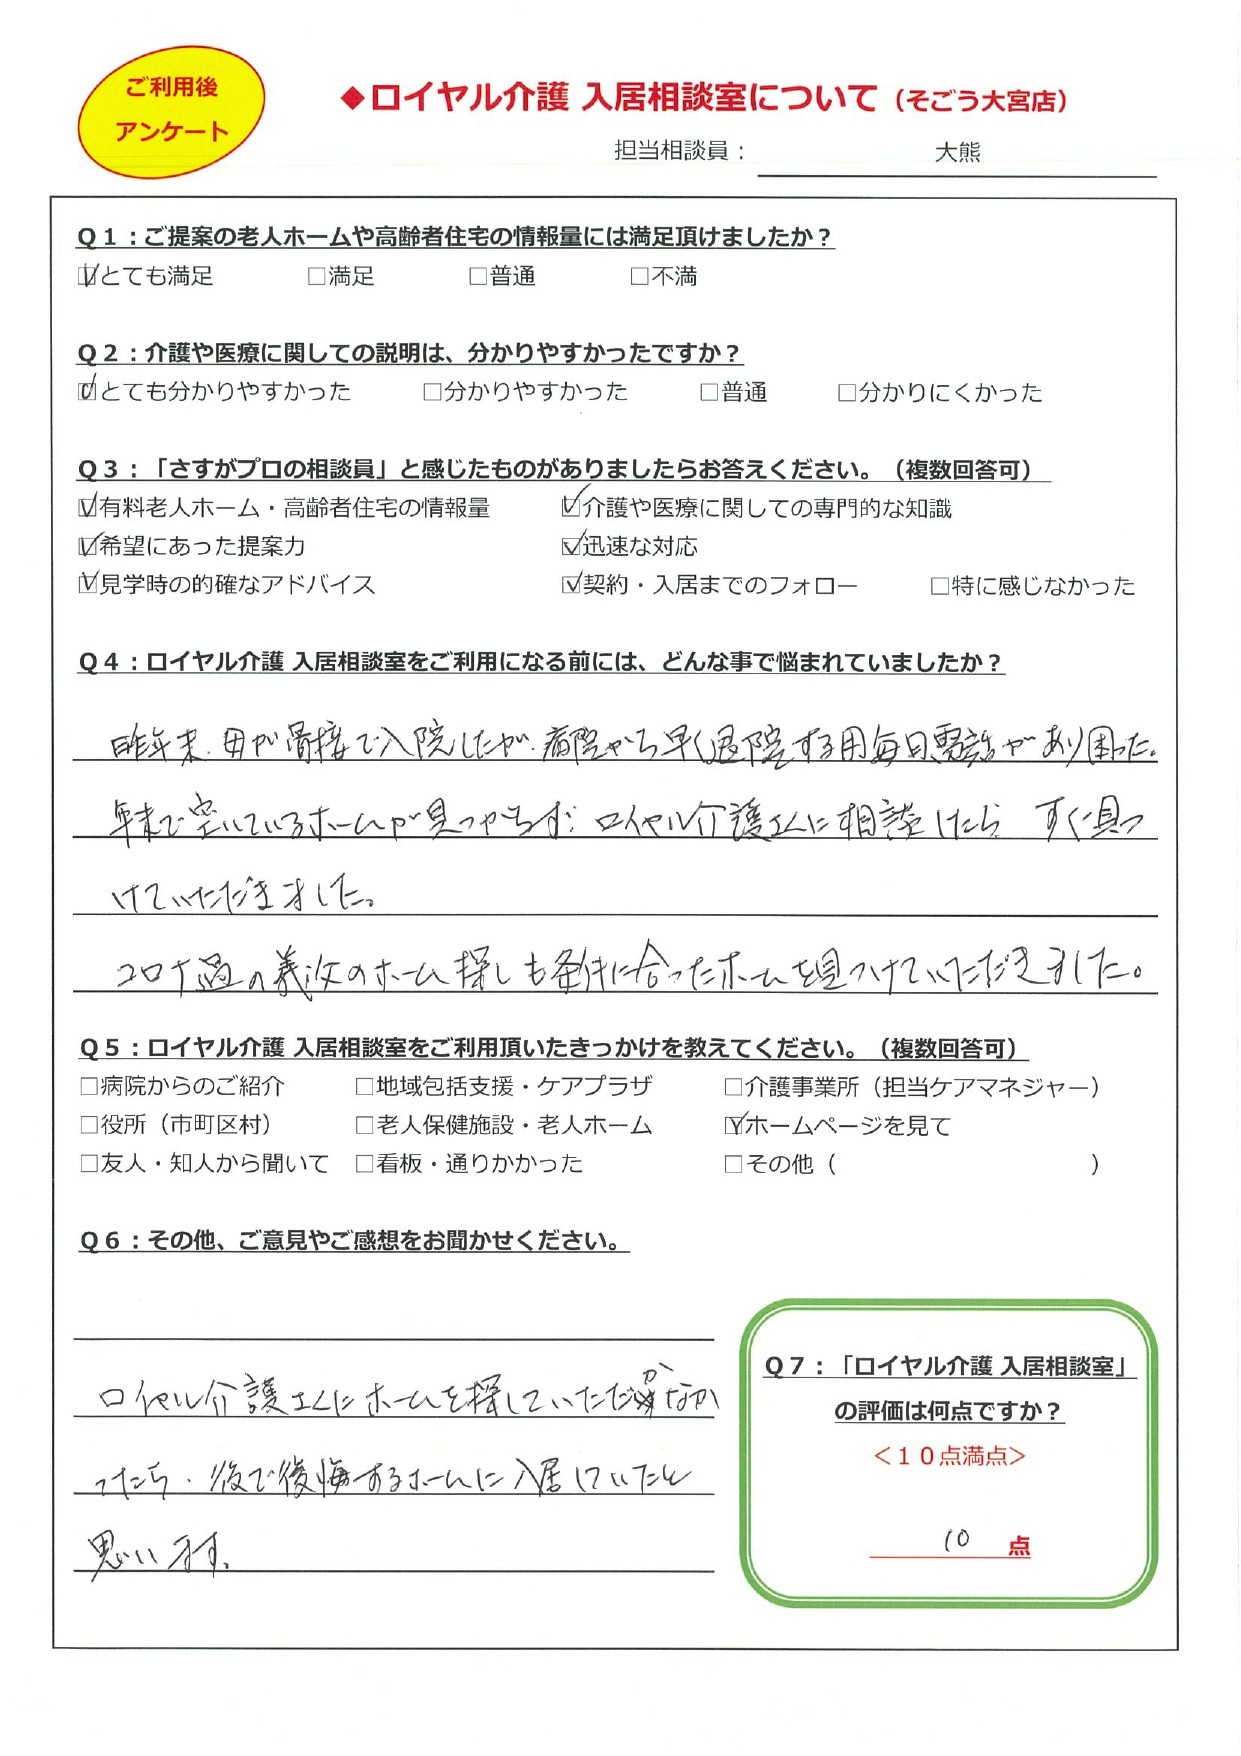 ご利用後
アンケート
◆ロイヤル介護 入居相談室について（そごう大宮店）
担当相談員： 大熊
Q1：ご提案の老人ホームや高齢者住宅の情報量には満足頂けましたか？
☑とても満足 □満足 □普通 □不満
Q2：介護や医療に関しての説明は、分かりやすかったですか？
☑とても分かりやすかった □分かりやすかった □普通 □分かりにくかった
Q3：「さすがプロの相談員」と感じたものがありましたらお答えください。（複数回答可）
☑有料老人ホーム・高齢者住宅の情報量 ☑介護や医療に関しての専門的な知識
☑希望にあった提案力 ☑迅速な対応
☑見学時の的確なアドバイス ☑契約・入居までのフォロー □特に感じなかった
Q4：ロイヤル介護 入居相談室をご利用になる前には、どんな事で悩まれていましたか？
昨年末、母が骨接で入院したが、病院から早く退院する用毎日電話があり困った。
年末で空いているホームが見つからず、ロイヤル介護さんに相談したら すぐ見つ
けていただきました。
コロナ過の義父のホーム探しも条件に合ったホームを見つけていただきました。
Q5：ロイヤル介護 入居相談室をご利用頂いたきっかけを教えてください。（複数回答可）
□病院からのご紹介 □地域包括支援・ケアプラザ □介護事業所（担当ケアマネジャー）
□役所（市町区村） □老人保健施設・老人ホーム ☑ホームページを見て
□友人・知人から聞いて □看板・通りかかった □その他（ ）
Q6：その他、ご意見やご感想をお聞かせください。
ロイヤル介護さんにホームを探していただかなか
ったら、後で後悔するホームに入居していたと
思います。
Q7：「ロイヤル介護 入居相談室」
の評価は何点ですか？
＜10点満点＞
10 点